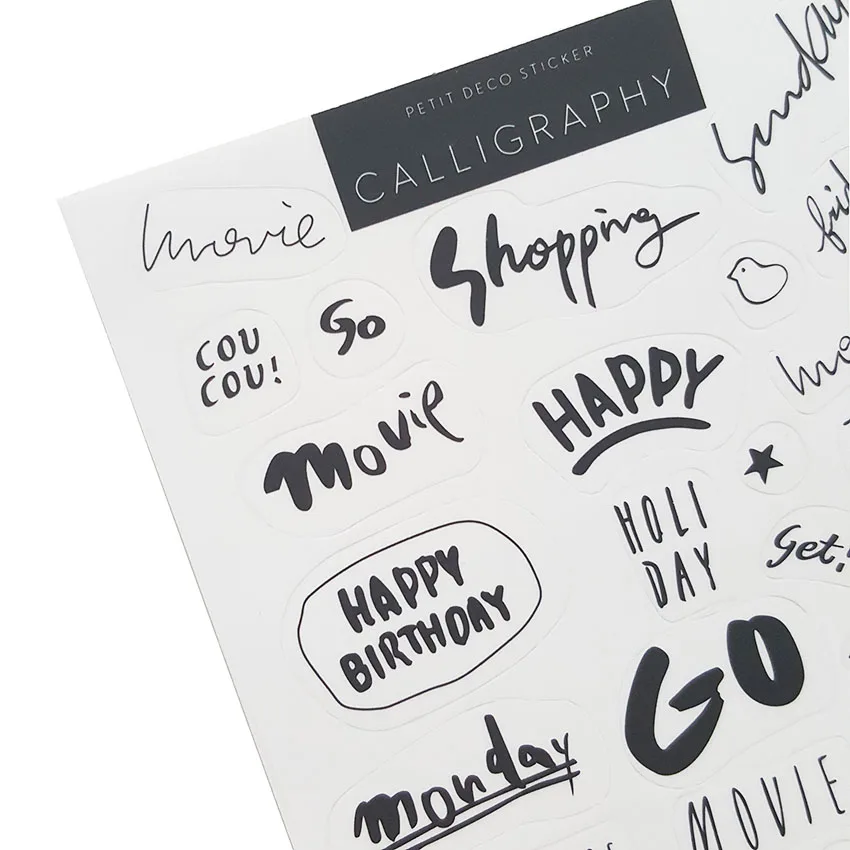 PETIT DECO STICKER
CALLIGRAPHY
movie
Shopping
COU
COU!
Go
movie
HAPPY
HOLI
DAY
Get!
HAPPY
BIRTHDAY
GO
monday
MOVIE